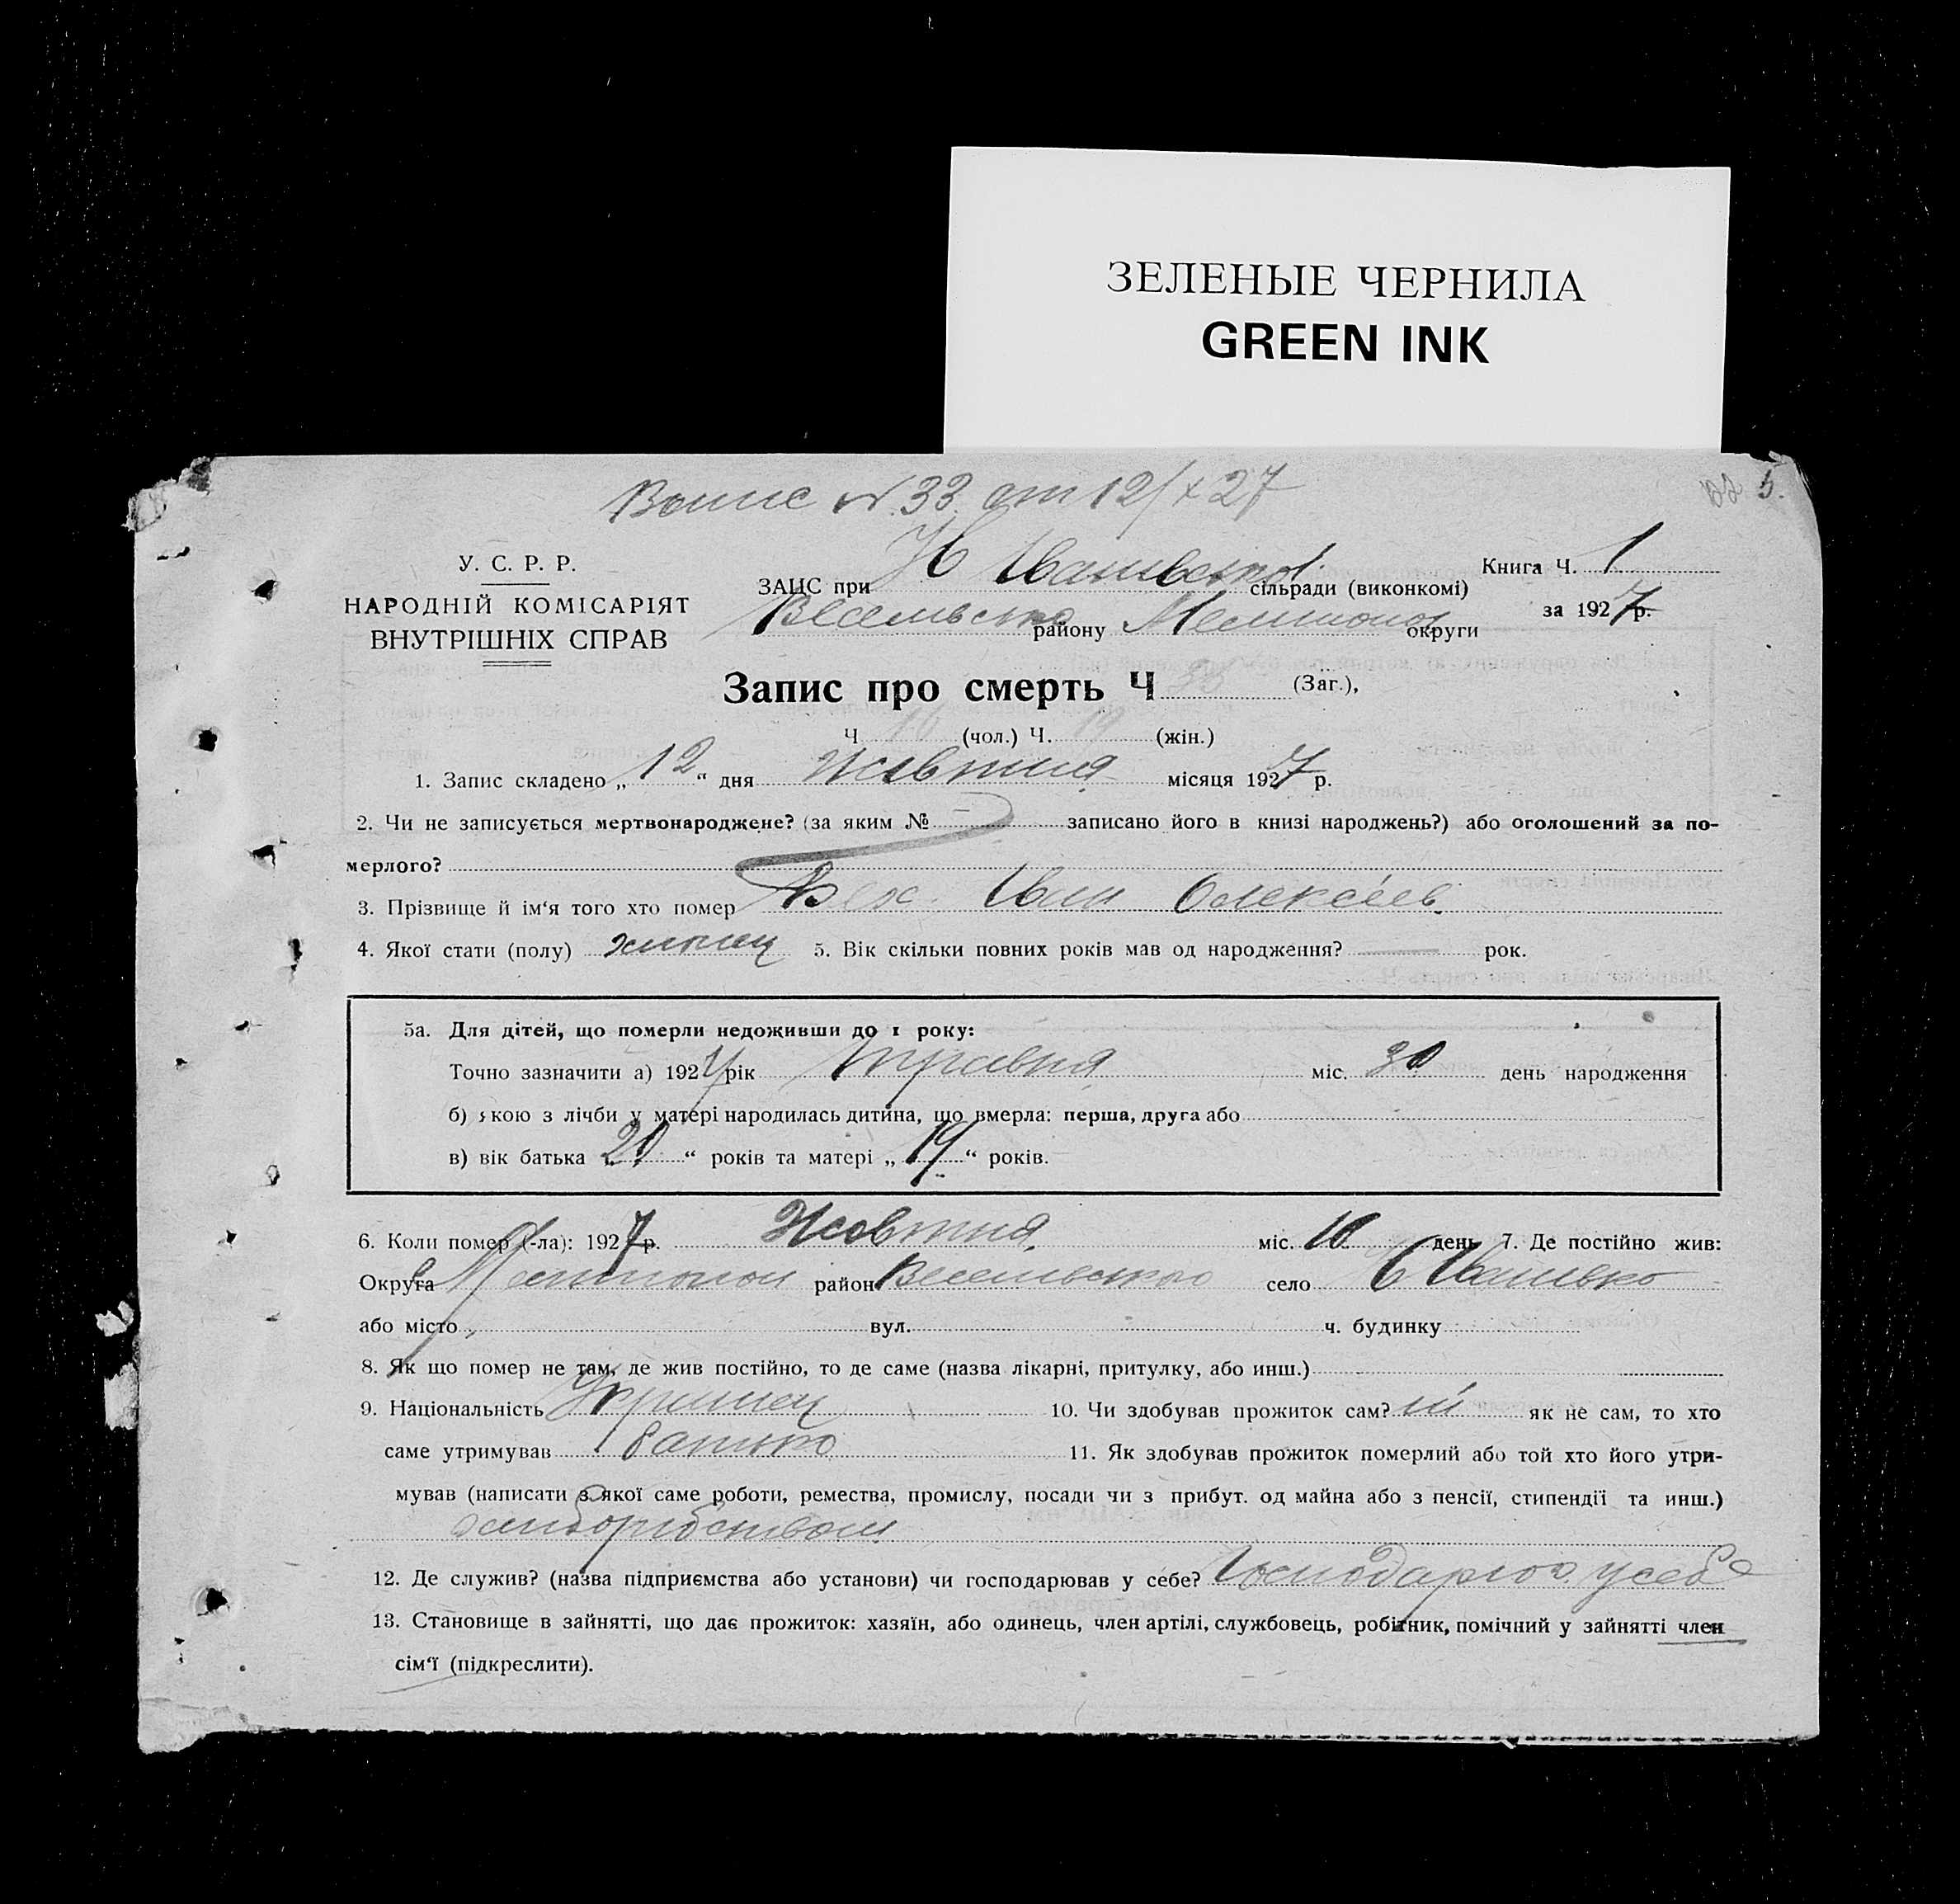 ЗЕЛЕНЫЕ ЧЕРНИЛА
GREEN INK
5.
N 33 от 12/X 27
У. С. Р. Р.
НАРОДНІЙ КОМІСАРІЯТ
ВНУТРІШНІХ СПРАВ
ЗАЦС при Н Іванівській сільради (виконкомі)
Книга Ч. 1
Веселівсько району Мелитопол округи
за 1927 р.
Запис про смерть Ч 33 (Заг.),
Ч (чол.) Ч. (жін.)
1. Запис складено „ 12 “ дня Жовтня місяця 1927 р.
2. Чи не записується мертвонароджене? (за яким № — записано його в книзі народжень?) або оголошений за по-
мерлого?
3. Прізвище й ім‘я того хто помер Іван Олексіев
4. Якої стати (полу) хлопец 5. Вік скільки повних років мав од народження? — рок.
5а. Для дітей, що померли недоживши до 1 року:
Точно зазначити а) 1927 рік травня міс. 30 день народження
б) якою з лічби у матері народилась дитина, що вмерла: перша, друга або
в) вік батька 20 “ років та матері „ 19 “ років.
6. Коли помер (-ла): 1927 р. Жовтня міс. 10 день 7. Де постійно жив:
Округа Мелитопол район Веселивського село Іванівко
або місто вул. ч. будинку
8. Як що помер не там, де жив постійно, то де саме (назва лікарні, притулку, або инш.)
9. Національність Украинец 10. Чи здобував прожиток сам? ні як не сам, то хто
саме утримував батько 11. Як здобував прожиток померлий або той хто його утри-
мував (написати з якої саме роботи, ремества, промислу, посади чи з прибут. од майна або з пенсії, стипендії та инш.)
хліборобством
12. Де служив? (назва підприємства або установи) чи господарював у себе? Господарював у себе
13. Становище в зайнятті, що дає прожиток: хазяїн, або одинець, член артілі, службовець, робітник, помічний у зайнятті член
сім‘ї (підкреслити).